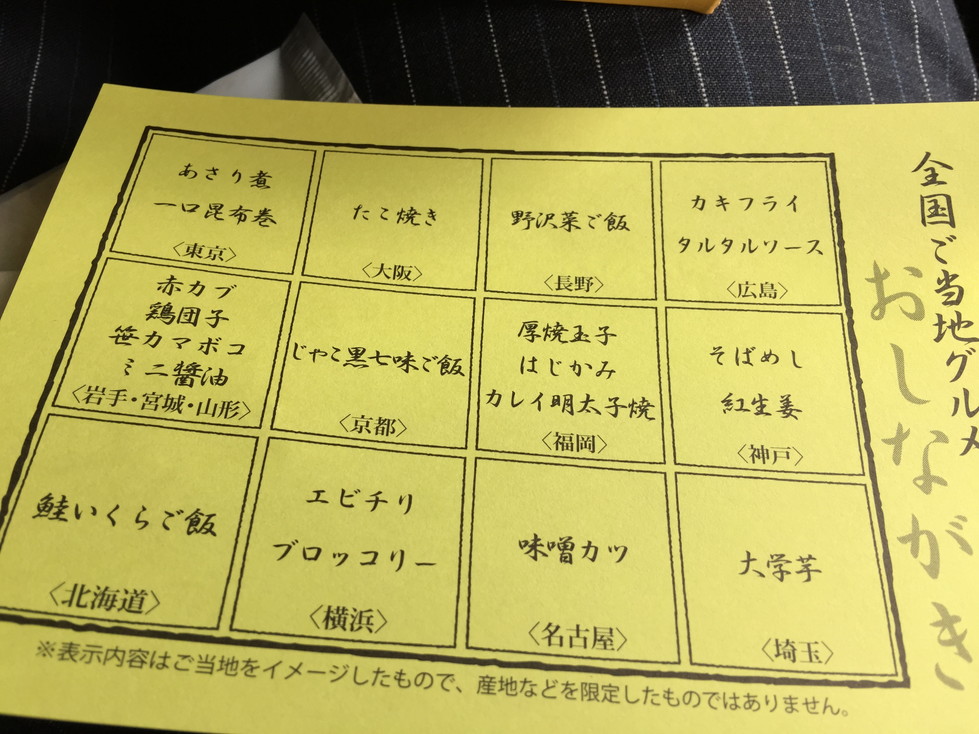 全国ご当地グルメ
おしながき
あさり煮
一口昆布巻
〈東京〉
たこ焼き
〈大阪〉
野沢菜ご飯
〈長野〉
カキフライ
タルタルソース
〈広島〉
赤カブ
鶏団子
笹カマボコ
ミニ醤油
〈岩手・宮城・山形〉
じゃこ黒七味ご飯
〈京都〉
厚焼玉子
はじかみ
カレイ明太子焼
〈福岡〉
そばめし
紅生姜
〈神戸〉
鮭いくらご飯
〈北海道〉
エビチリ
ブロッコリー
〈横浜〉
味噌カツ
〈名古屋〉
大学芋
〈埼玉〉
※表示内容はご当地をイメージしたもので、産地などを限定したものではありません。